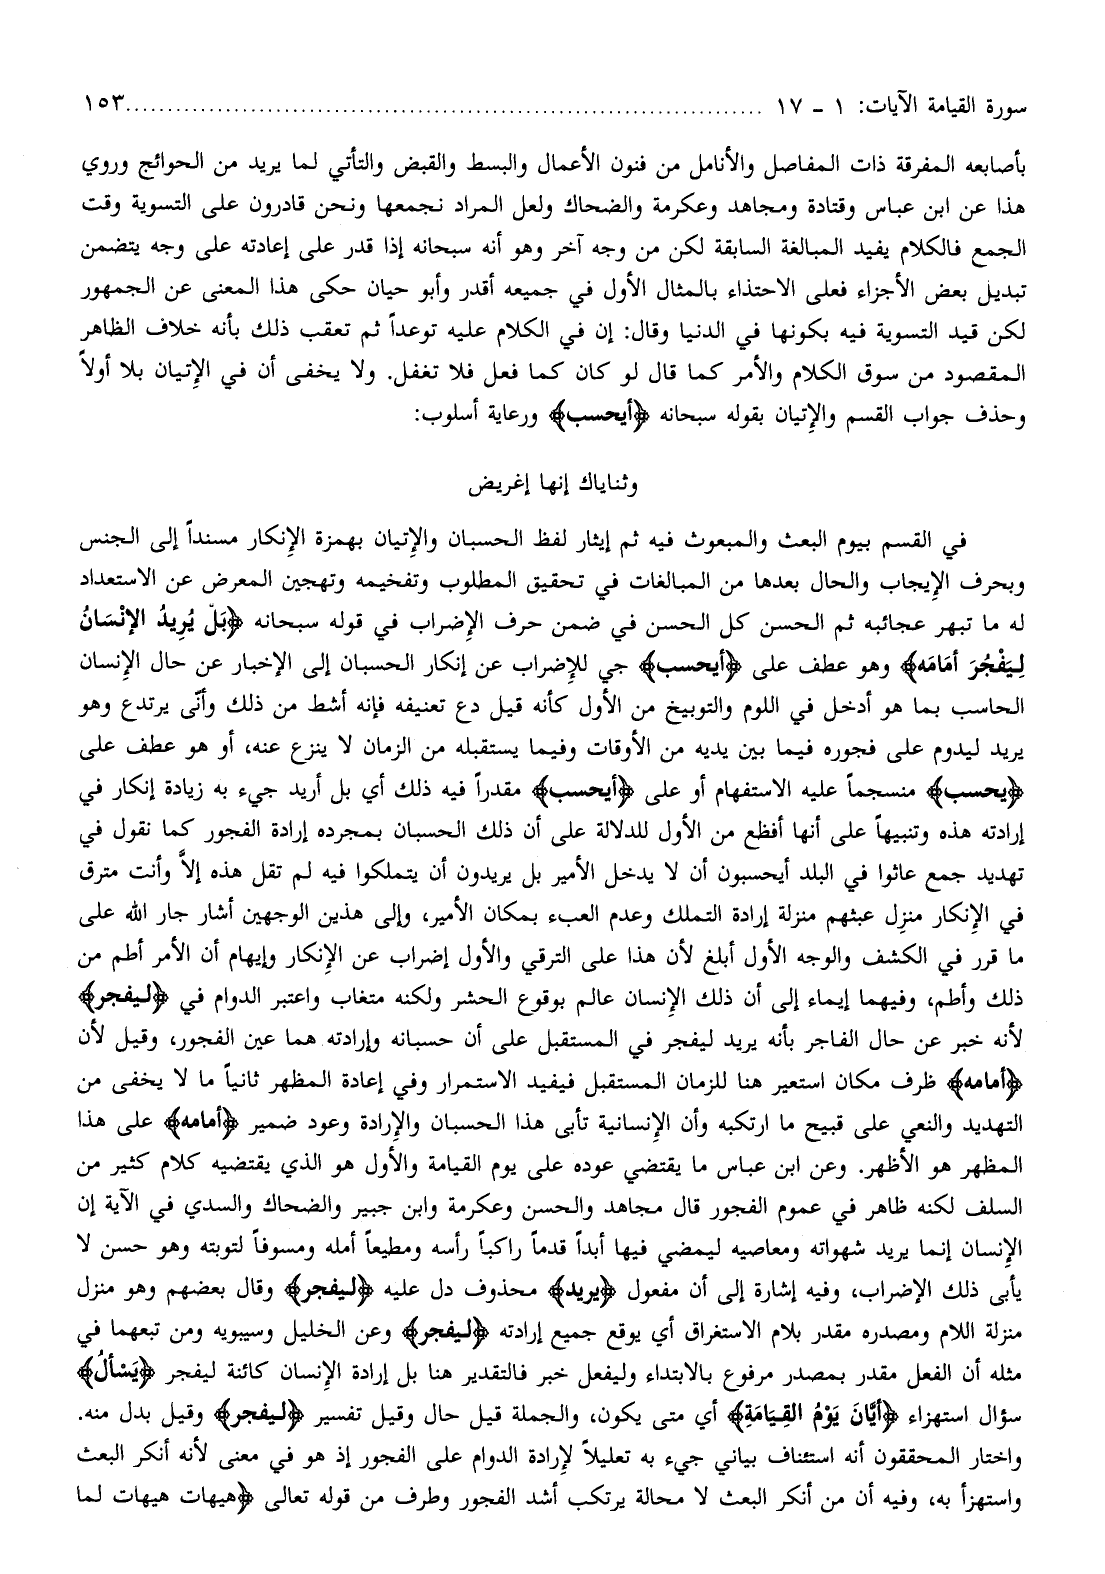 سورة القيامة الآيات: ١ - ١٧ .......... ١٥٣
بأصابعه المفرقة ذات المفاصل والأنامل من فنون الأعمال والبسط والقبض والتأتي لما يريد من الحوائج وروي
هذا عن ابن عباس وقتادة ومجاهد وعكرمة والضحاك ولعل المراد نجمعها ونحن قادرون على التسوية وقت
الجمع فالكلام يفيد المبالغة السابقة لكن من وجه آخر وهو أنه سبحانه إذا قدر على إعادته على وجه يتضمن
تبديل بعض الأجزاء فعلى الاحتذاء بالمثال الأول في جميعه أقدر وأبو حيان حكى هذا المعنى عن الجمهور
لكن قيد التسوية فيه بكونها في الدنيا وقال: إن في الكلام عليه توعداً ثم تعقب ذلك بأنه خلاف الظاهر
المقصود من سوق الكلام والأمر كما قال لو كان كما فعل فلا تغفل. ولا يخفى أن في الإتيان بلا أولاً
وحذف جواب القسم والإتيان بقوله سبحانه ﴿أيحسب﴾ ورعاية أسلوب:
وثناياك إنها إغريض
في القسم بيوم البعث والمبعوث فيه ثم إيثار لفظ الحسبان والإتيان بهمزة الإنكار مسنداً إلى الجنس
وبحرف الإيجاب والحال بعدها من المبالغات في تحقيق المطلوب وتفخيمه وتهجين المعرض عن الاستعداد
له ما تبهر عجائبه ثم الحسن كل الحسن في ضمن حرف الإضراب في قوله سبحانه ﴿بَلْ يُرِيدُ الإنْسَانُ
لِيَفْجُرَ أمَامَه﴾ وهو عطف على ﴿أيحسب﴾ جي للإضراب عن إنكار الحسبان إلى الإخبار عن حال الإنسان
الحاسب بما هو أدخل في اللوم والتوبيخ من الأول كأنه قيل دع تعنيفه فإنه أشط من ذلك وأنّى يرتدع وهو
يريد ليدوم على فجوره فيما بين يديه من الأوقات وفيما يستقبله من الزمان لا ينزع عنه، أو هو عطف على
﴿يحسب﴾ منسجماً عليه الاستفهام أو على ﴿أيحسب﴾ مقدراً فيه ذلك أي بل أريد جيء به زيادة إنكار في
إرادته هذه وتنبيهاً على أنها أفظع من الأول للدلالة على أن ذلك الحسبان بمجرده إرادة الفجور كما نقول في
تهديد جمع عاثوا في البلد أيحسبون أن لا يدخل الأمير بل يريدون أن يتملكوا فيه لم تقل هذه إلاَّ وأنت مترق
في الإنكار منزل عبثهم منزلة إرادة التملك وعدم العبء بمكان الأمير، وإلى هذين الوجهين أشار جار الله على
ما قرر في الكشف والوجه الأول أبلغ لأن هذا على الترقي والأول إضراب عن الإنكار وإيهام أن الأمر أطم من
ذلك وأطم، وفيهما إيماء إلى أن ذلك الإنسان عالم بوقوع الحشر ولكنه متغاب واعتبر الدوام في ﴿ليفجر﴾
لأنه خبر عن حال الفاجر بأنه يريد ليفجر في المستقبل على أن حسبانه وإرادته هما عين الفجور، وقيل لأن
﴿أمامه﴾ ظرف مكان استعير هنا للزمان المستقبل فيفيد الاستمرار وفي إعادة المظهر ثانياً ما لا يخفى من
التهديد والنعي على قبيح ما ارتكبه وأن الإنسانية تأبى هذا الحسبان والإرادة وعود ضمير ﴿أمامه﴾ على هذا
المظهر هو الأظهر. وعن ابن عباس ما يقتضي عوده على يوم القيامة والأول هو الذي يقتضيه كلام كثير من
السلف لكنه ظاهر في عموم الفجور قال مجاهد والحسن وعكرمة وابن جبير والضحاك والسدي في الآية إن
الإنسان إنما يريد شهواته ومعاصيه ليمضي فيها أبداً قدماً راكباً رأسه ومطيعاً أمله ومسوفاً لتوبته وهو حسن لا
يأبى ذلك الإضراب، وفيه إشارة إلى أن مفعول ﴿يريد﴾ محذوف دل عليه ﴿ليفجر﴾ وقال بعضهم وهو منزل
منزلة اللام ومصدره مقدر بلام الاستغراق أي يوقع جميع إرادته ﴿ليفجر﴾ وعن الخليل وسيبويه ومن تبعهما في
مثله أن الفعل مقدر بمصدر مرفوع بالابتداء وليفعل خبر فالتقدير هنا بل إرادة الإنسان كائنة ليفجر ﴿يَسْألُ﴾
سؤال استهزاء ﴿أيَّانَ يَوْمُ القِيَامَةِ﴾ أي متى يكون، والجملة قيل حال وقيل تفسير ﴿ليفجر﴾ وقيل بدل منه.
واختار المحققون أنه استئناف بياني جيء به تعليلاً لإرادة الدوام على الفجور إذ هو في معنى لأنه أنكر البعث
واستهزأ به، وفيه أن من أنكر البعث لا محالة يرتكب أشد الفجور وطرف من قوله تعالى ﴿هيهات هيهات لما